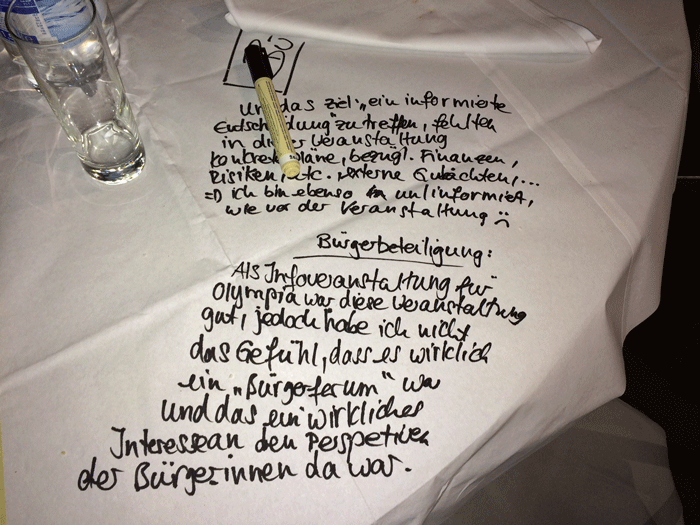 Um das Ziel "ein informierte
Entscheidung" zu treffen, fehlten
in dieser Veranstaltung
konkrete Pläne, bezügl. Finanzen,
Risiken, etc. externe Gutachten, ...
=> ich bin ebenso un/informiert,
wie vor der Veranstaltung :(
Bürgerbeteiligung:
Als Infoveranstaltung für
Olympia war diese Veranstaltung
gut, jedoch habe ich nicht
das Gefühl, dass es wirklich
ein "Bürgerforum" war
und das ein wirkliches
Interesse an den Perspetiven
der Bürger:innen da war.